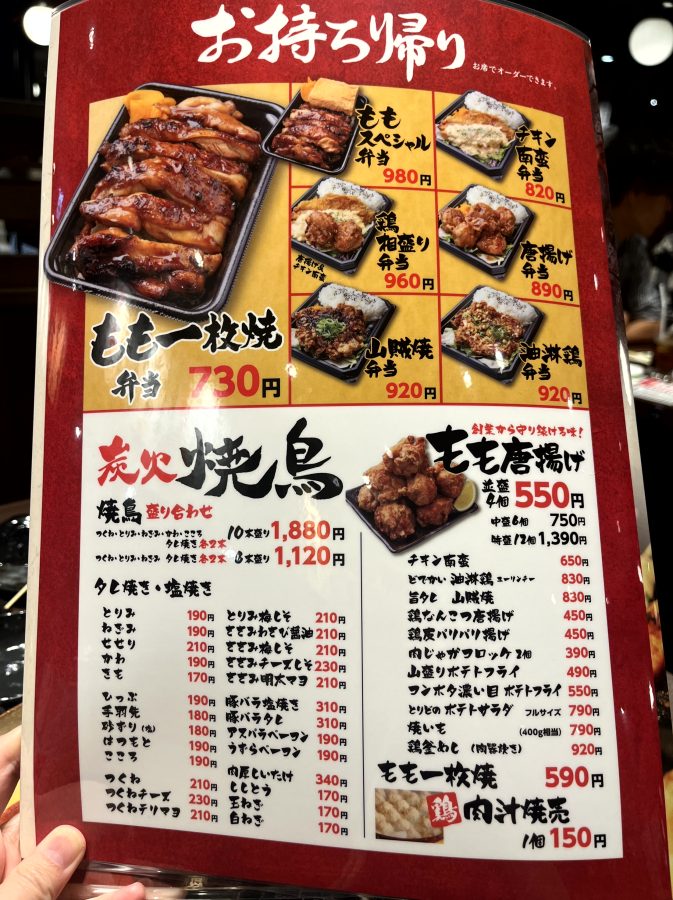 お持ち帰り
お席でオーダーできます。
もも一枚焼
弁当 730円
もも
スペシャル
弁当
980円
チキン
南蛮
弁当
820円
鶏
相盛り
弁当
唐揚げ&
チキン南蛮
960円
唐揚げ
弁当
890円
山賊焼
弁当
920円
油淋鶏
弁当
920円
炭火 焼鳥
焼鳥 盛り合わせ
つくね・とりみ・ねぎみ・かわ・こころ
タレ焼き 各2本
10本盛り 1,880円
つくね・とりみ・ねぎみ タレ焼き 各2本
1,120円
タレ焼き・塩焼き
とりみ 190円
ねぎみ 190円
せせり 210円
かわ 190円
きも 170円
ひっぷ 190円
手羽先 180円
砂ずり(塩) 180円
はつもと 190円
こころ 190円
つくね 210円
つくねチーズ 230円
つくねテリマヨ 210円
とりみ梅しそ 210円
ささみわさび醤油 210円
ささみ梅しそ 210円
ささみチーズしそ 230円
ささみ明太マヨ 210円
豚バラ塩焼き 310円
豚バラタレ 310円
アスパラベーコン 190円
うずらベーコン 190円
肉厚しいたけ 340円
ししとう 170円
玉ねぎ 170円
白ねぎ 170円
創業から守り続ける味!
もも唐揚げ
並盛
4個 550円
中盛6個 750円
特盛12個 1,390円
チキン南蛮 650円
どでかい 油淋鶏 ユーリンチー 830円
旨タレ 山賊焼 830円
鶏なんこつ唐揚げ 450円
鶏皮パリパリ揚げ 450円
肉じゃがコロッケ 2個 390円
山盛りポテトフライ 490円
コンポタ濃い目 ポテトフライ 550円
とりどの ポテトサラダ フルサイズ 790円
焼いも (400g相当) 790円
鶏釜めし 920円
もも一枚焼 590円
鶏 肉汁焼売
1個 150円